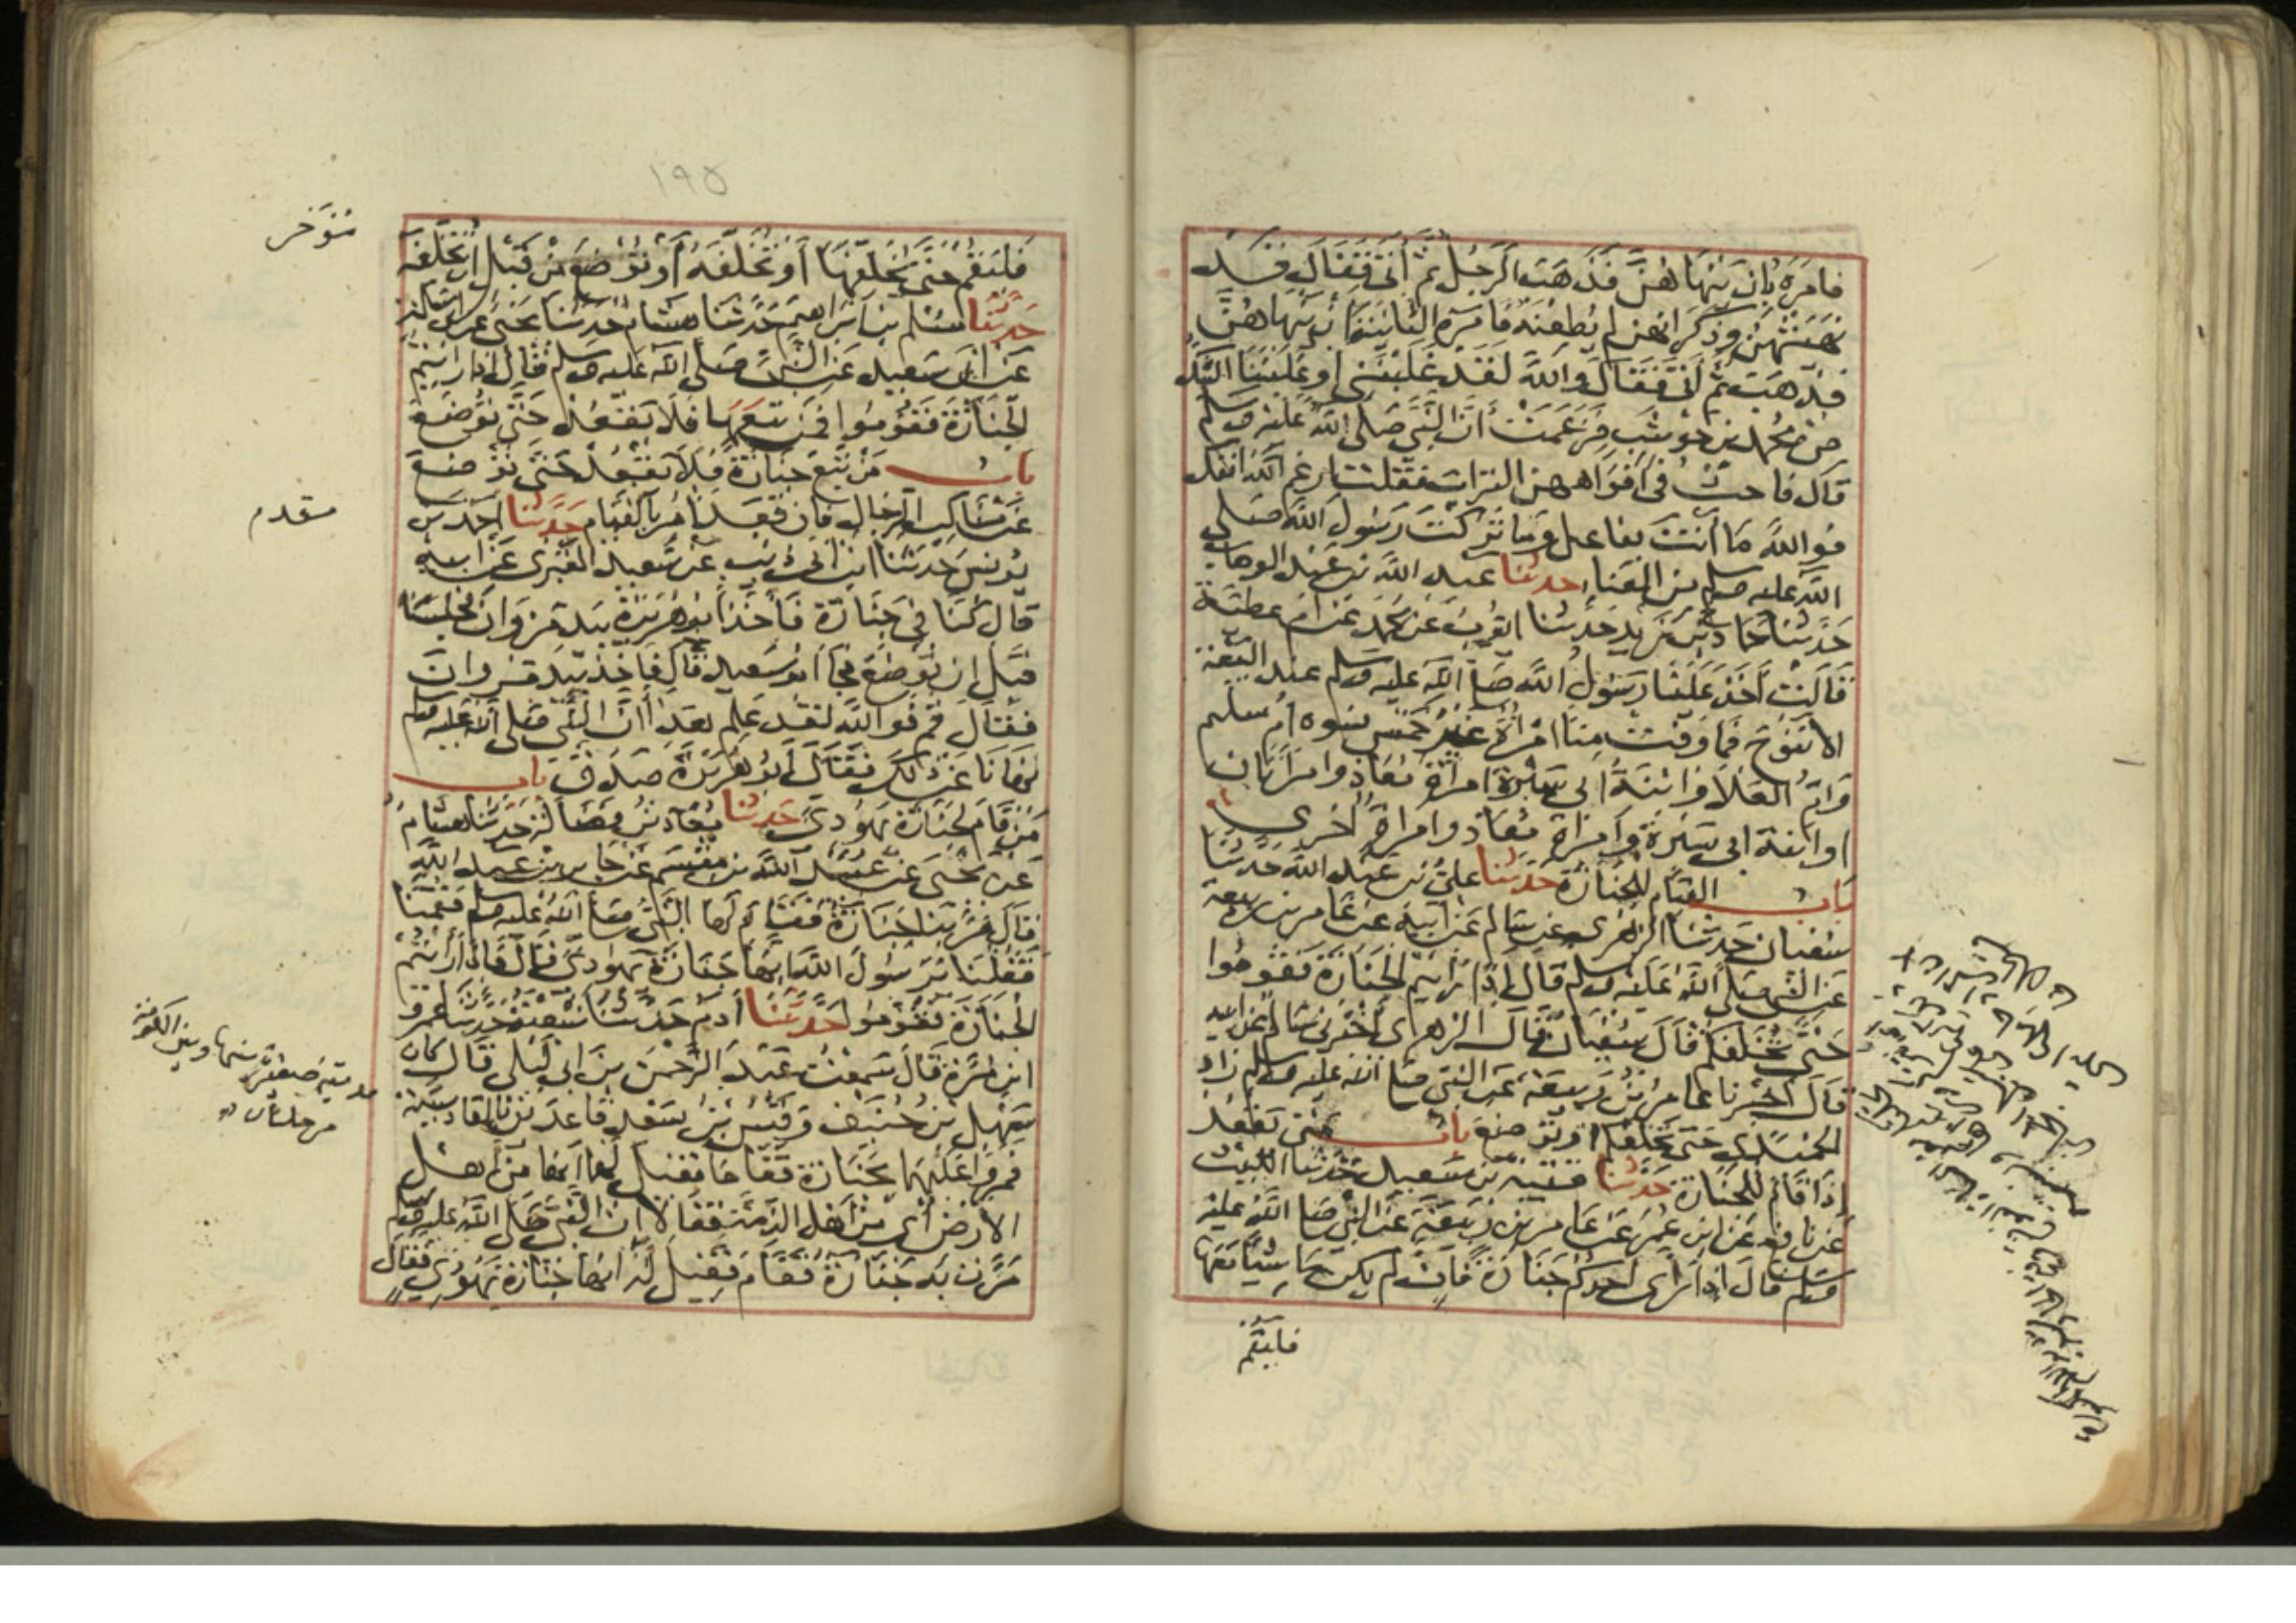 فامره بان ينهاهن فذهب الرجل ثم اتى فقال قد
نهيتهن وذكر انهن لم يطعنه فامره الثانية ان ينهاهن
فذهب ثم اتى فقال والله لقد غلبنني او غلبننا الشك
من محمد بن حوشب فزعمت أن النبي صلى الله عليه وسلم
قال فاحث في افواههن التراب فقلت ارغم الله انفك
فوالله ما انت بفاعل وما تركت رسول الله صلى
الله عليه وسلم من العناء حدثنا عبد الله بن عبد الوهاب
حدثنا حماد بن زيد حدثنا ايوب عن محمد عن ام عطية
قالت أخذ علينا رسول الله صلى الله عليه وسلم عند البيعة
الا ننوح فما وفت منا امرأة غير خمس نسوه ام سليم
وام العلاء وابنة ابي سبرة امرأة معاذ وامراتان
او ابنة ابي سبرة وامراة معاذ وامراة اخرى
باب القيام للجنازة حدثنا علي بن عبد الله حدثنا
سفيان حدثنا الزهري عن سالم عن ابيه عن عامر بن ربيعة
عن النبي صلى الله عليه وسلم قال إذا رأيتم الجنازة فقوموا
حتى تخلفكم قال سفيان قال الزهري أخبرني سالم عن ابيه
قال اخبرنا عامر بن ربيعة عن النبي صلى الله عليه وسلم زاد
الحميدي حتى تخلفكم او توضع باب متى يقعد
إذا قام للجنازة حدثنا قتيبة بن سعيد حدثنا الليث
عن نافع عن ابن عمر عن عامر بن ربيعة عن النبي صلى الله عليه
وسلم قال اذا رأى احدكم جنازة فان لم يكن ماشيا معها
فليقم
١٩٥
فليقم حتى يخلفها أو تخلفه أو توضع من قبل ان تخلفه
مؤخر
حدثنا مسلم بن ابراهيم حدثنا هشام حدثنا يحيى عن ابي سلمة
عن ابي سعيد عن النبي صلى الله عليه وسلم قال اذا رايتم
الجنازة فقوموا فمن تبعها فلا يقعد حتى توضع
باب من تبع جنازة فلا يقعد حتى توضع
عن مناكب الرجال فان قعد امر بالقيام حدثنا احمد بن
مقدم
يونس حدثنا ابن ابي ذئب عن سعيد المقبري عن ابيه
قال كنا في جنازة فأخذ ابو هريرة بيد مروان فجلسا
قبل ان توضع فجاء ابو سعيد قال فاخذ بيد مروان
فقال قم فوالله لقد علم هذا أن النبي صلى الله عليه وسلم
نهانا عن ذلك فقال أبو هريرة صدق باب
من قام لجنازة يهودي حدثنا معاذ بن فضالة حدثنا هشام
عن يحيى عن عبيد الله بن مقسم عن جابر بن عبد الله
قال مر بنا جنازة فقام لها النبي صلى الله عليه وسلم فقمنا
فقلنا يا رسول الله انها جنازة يهودي قال فاذا رأيتم
الجنازة فقوموا حدثنا آدم حدثنا شعبة حدثنا عمرو
ابن مرة قال سمعت عبد الرحمن بن ابي ليلى قال كان
سهل بن حنيف وقيس بن سعد قاعدين بالقادسية
مدينة صغيرة بينها وبين الكوفة
مرحلتان
فمروا عليهما بجنازة فقاما فقيل لهما انها من أهل
الارض أي من اهل الذمة فقالا ان النبي صلى الله عليه وسلم
مرت به جنازة فقام فقيل له انها جنازة يهودي فقال